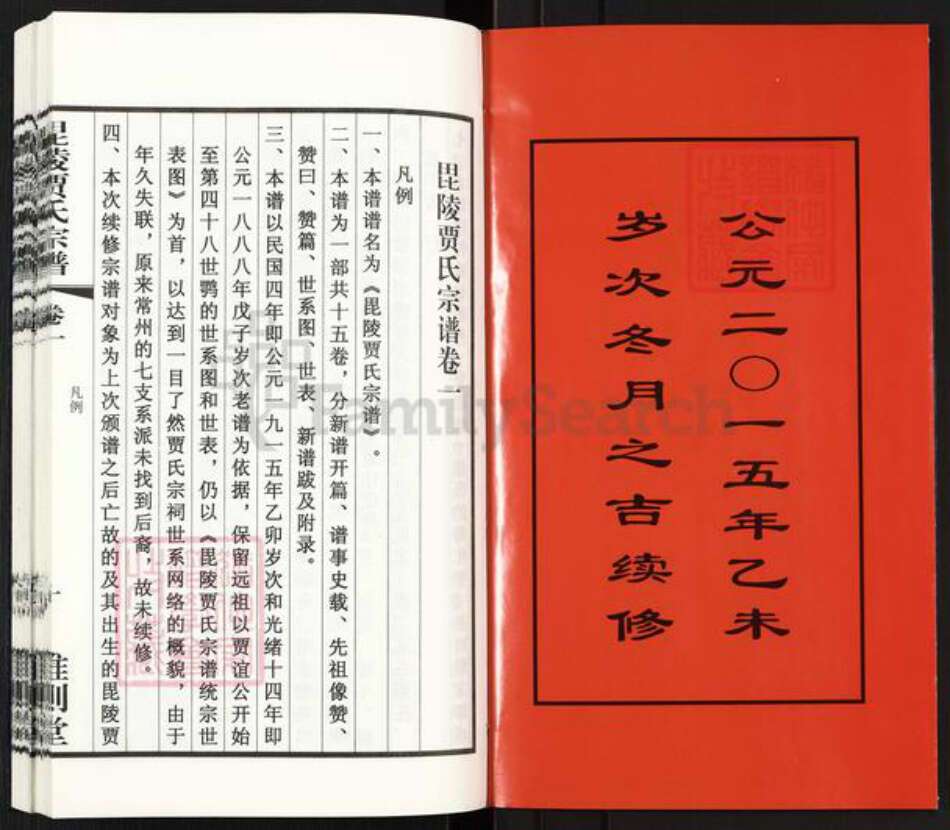 公元二〇一五年乙未
岁次冬月之吉续修
毘陵贾氏宗谱卷一
凡例
一、本谱谱名为《毘陵贾氏宗谱》。
二、本谱为一部共十五卷，分新谱开篇、谱事史载、先祖像赞、
赞曰、赞篇、世系图、世表、新谱跋及附录。
三、本谱以民国四年即公元一九一五年乙卯岁次和光绪十四年即
公元一八八八年戊子岁次老谱为依据，保留远祖以贾谊公开始
至第四十八世鹗的世系图和世表，仍以《毘陵贾氏宗谱统宗世
表图》为首，以达到一目了然贾氏宗祠世系网络的概貌，由于
年久失联，原来常州的七支系派未找到后裔，故未续修。
四、本次续修宗谱对象为上次颁谱之后亡故的及其出生的毘陵贾
毘陵贾氏宗谱
卷一
凡例
FamilySearch